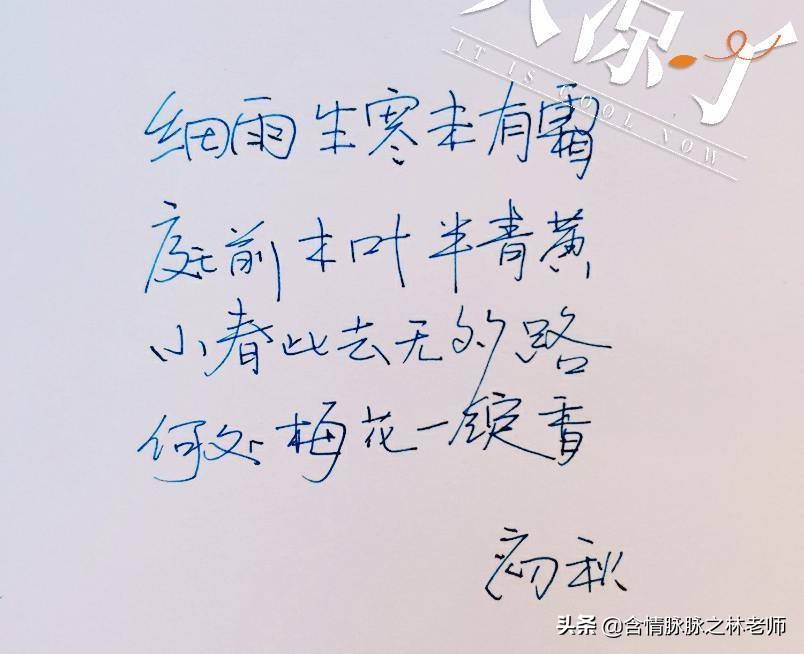 天凉了
IT IS COOL NOW
细雨生寒未有霜
庭前木叶半青黄
小春此去无多路
何处梅花一绽香
秋
头条 @含情脉脉之林老师